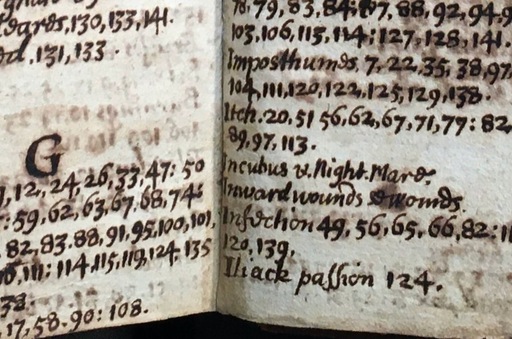 130, 133, 141.
131, 133.
G
12, 24, 26, 33, 47: 50
: 59, 62, 63, 67, 68, 74:
82, 83, 88, 91, 95, 100, 101,
111: 114, 115, 119, 124, 135
17, 58. 90: 108.
78, 79, 83, 84: 87, 88, 92, 94, 9
103, 106, 113, 114: 127, 128, 141.
Imposthumes, 7, 22, 35, 38, 97,
104, 111, 120, 122, 125, 129, 138.
Itch. 20, 51 56, 62, 67, 71, 79: 82
89, 97, 113.
Incubus v. Night. Mare.
Inward wounds
Infection 49, 56, 65, 66, 82: 11
120, 139.
Iliack passion 124.